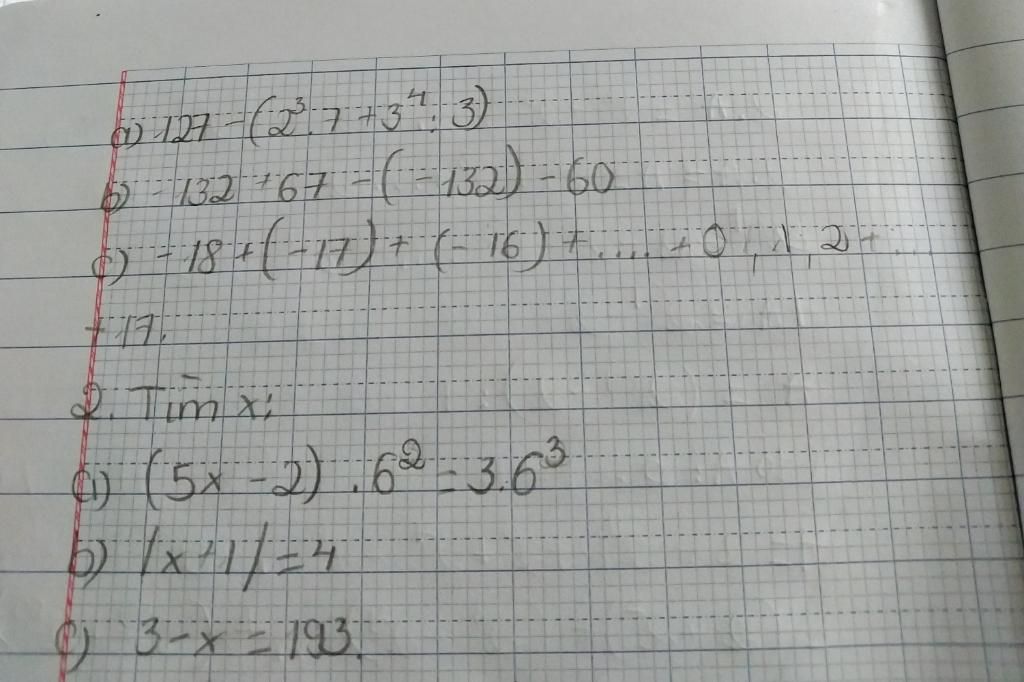 a) 127 - (2³. 7 + 3⁴ : 3)
b) - 132 + 67 - ( - 132) - 60
c) - 18 + (- 17) + (- 16) + .... + 0 , 1 , 2 + ...
+ 17.
2. Tìm x:
a) (5x - 2) . 6² = 3. 6³
b) |x + 1| = 4
c) 3 - x = 193.